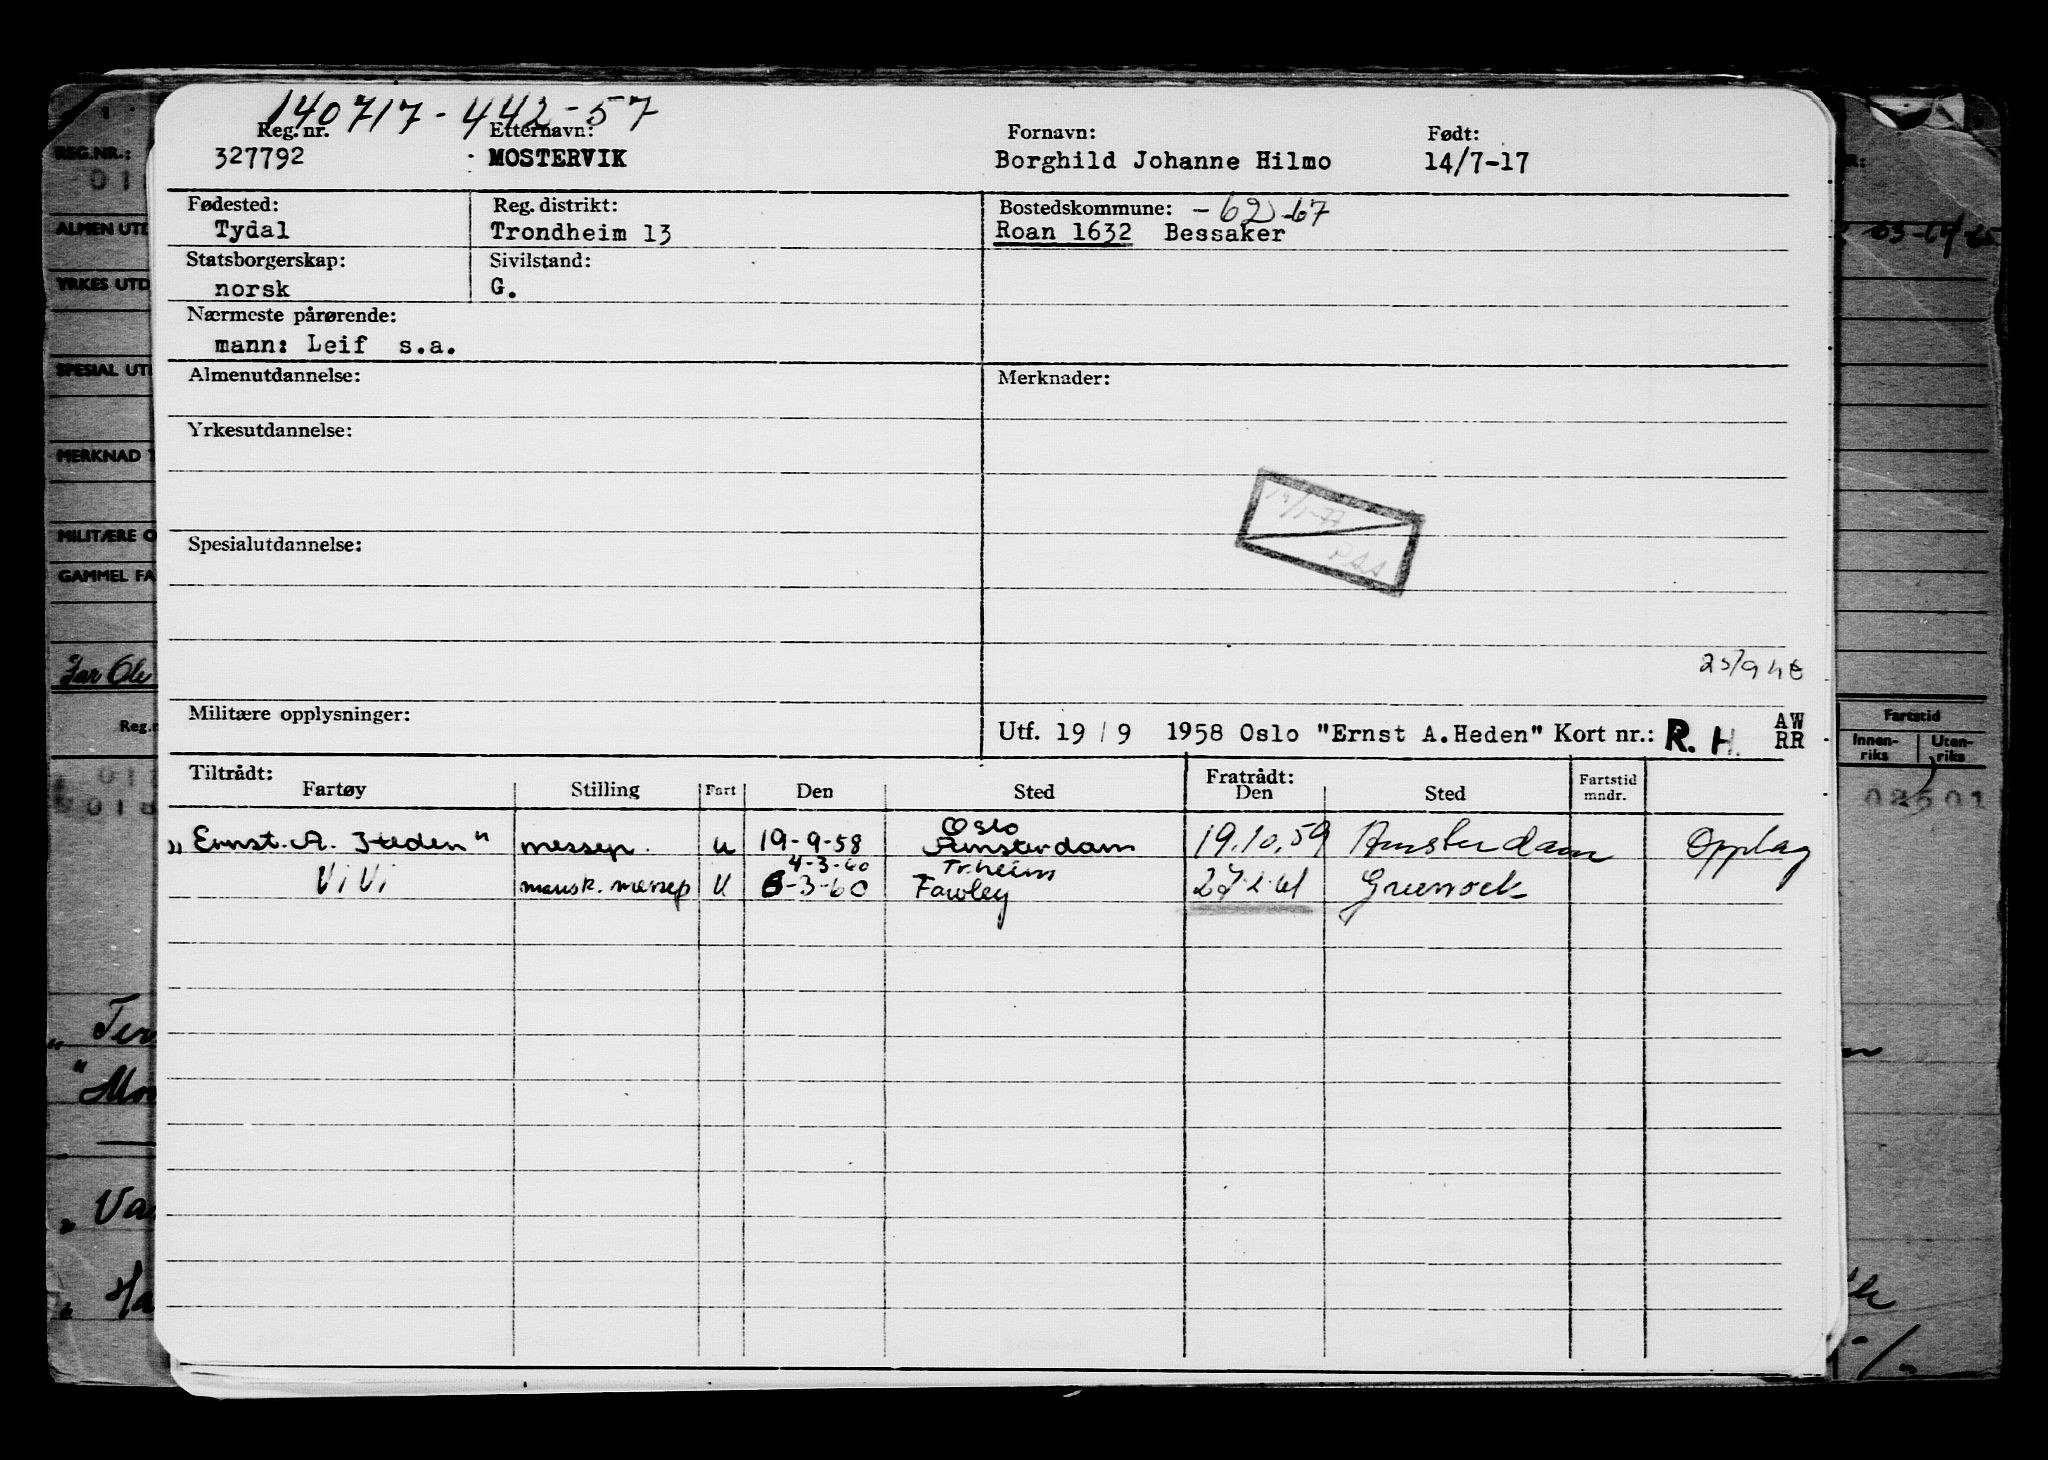 140717-442-57
Reg. nr. Etternavn: Fornavn: Født:
327792 MOSTERVIK Borghild Johanne Hilmo 14/7-17
Fødested: Reg. distrikt: Bostedskommune: -62-67
Tydal Trondheim 13 Roan 1632 Bessaker
Statsborgerskap: Sivilstand:
norsk G.
Nærmeste pårørende:
mann: Leif s.a.
Almenutdannelse: Merknader:
Yrkesutdannelse:
Spesialutdannelse:
Militære opplysninger:
Utf. 19 / 9 1958 Oslo "Ernst A.Heden" Kort nr.: R. H. AW
RR
Tiltrådt: Fratrådt:
Fartøy Stilling Fart Den Sted Den Sted Fartstid
mndr.
Oslo
"Ernst. A. Heden" messep. U 19-9-58 Amsterdam 19.10.59 Amsterdam Opplag
4-3-60 Tr.heim
ViVi mansk. messep U 6-3-60 Fawley 27.2.61 Greenock
REG.NR.:
ALMEN UTD
YRKES UTD
SPESIAL UT
MERKNAD
MILITÆRE O
GAMMEL FA
Reg.n
Fartstid
Innen-
riks
Uten-
riks
02501